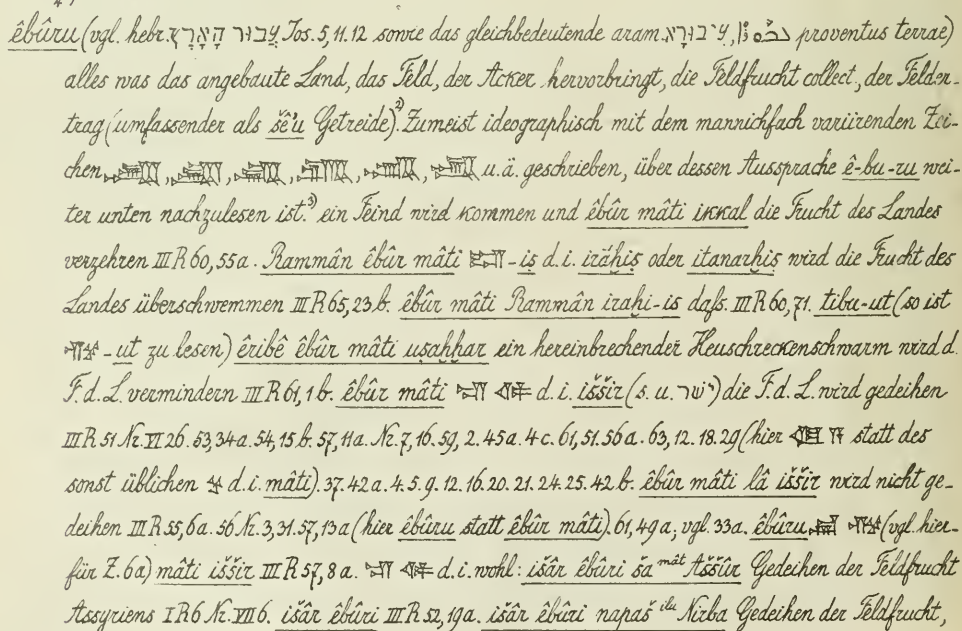 êbûru (vgl. hebr. עֲבוּר הָאָרֶץ Jos. 5, 11. 12 sowie das gleichbedeutende aram. עִיבוּרָא, proventus terrae)
alles was das angebaute Land, das Feld, der Acker hervorbringt, die Feldfrucht collect., der Felder-
trag (umfassender als šê'u Getreide).²⁾ Zumeist ideographisch mit dem mannichfach variirenden Zei-
chen u. ä. geschrieben, über dessen Aussprache ê-bu-ru wei-
ter unten nachzulesen ist.³⁾ ein Feind wird kommen und êbûr mâti ikkal die Frucht des Landes
verzehren III R 60, 55a. Rammân êbûr mâti -iṣ d. i. iráḫiṣ oder itanarḫiṣ wird die Frucht des
Landes überschwemmen III R 65, 23b. êbûr mâti Rammân iraḫi-iṣ dass. III R 60, 71. tibu-ut (so ist
-ut zu lesen) êribê êbûr mâti uṣaḫḫar ein hereinbrechender Heuschreckenschwarm wird d.
F. d. L. vermindern III R 61, 1b. êbûr mâti d. i. iššir (s. u. ישר) die F. d. L. wird gedeihen
III R 51 Nr. VI 26. 53, 34a. 54, 15b. 57, 11a. Nr. 7, 16. 59, 2. 45a. 4c. 61, 51. 56a. 63, 12. 18. 29 (hier statt des
sonst üblichen d. i. mâti). 37. 42a. 4. 5. 9. 12. 16. 20. 21. 24. 25. 42b. êbûr mâti lâ iššir wird nicht ge-
deihen III R 55, 6a. 56 Nr. 3, 31. 57, 13a (hier êbûru statt êbûr mâti). 61, 49a; vgl. 33a. êbûru (vgl. hier-
für Z. 6a) mâti iššir III R 57, 8a. d. i. wohl: išâr êbûri ša ᵐᵃᵗ Aššûr Gedeihen der Feldfrucht
Assyriens I R 6 Nr. VII 6. išâr êbûri III R 52, 19a. išâr êbûri napaš ⁱˡᵘ Nirba Gedeihen der Feldfrucht,